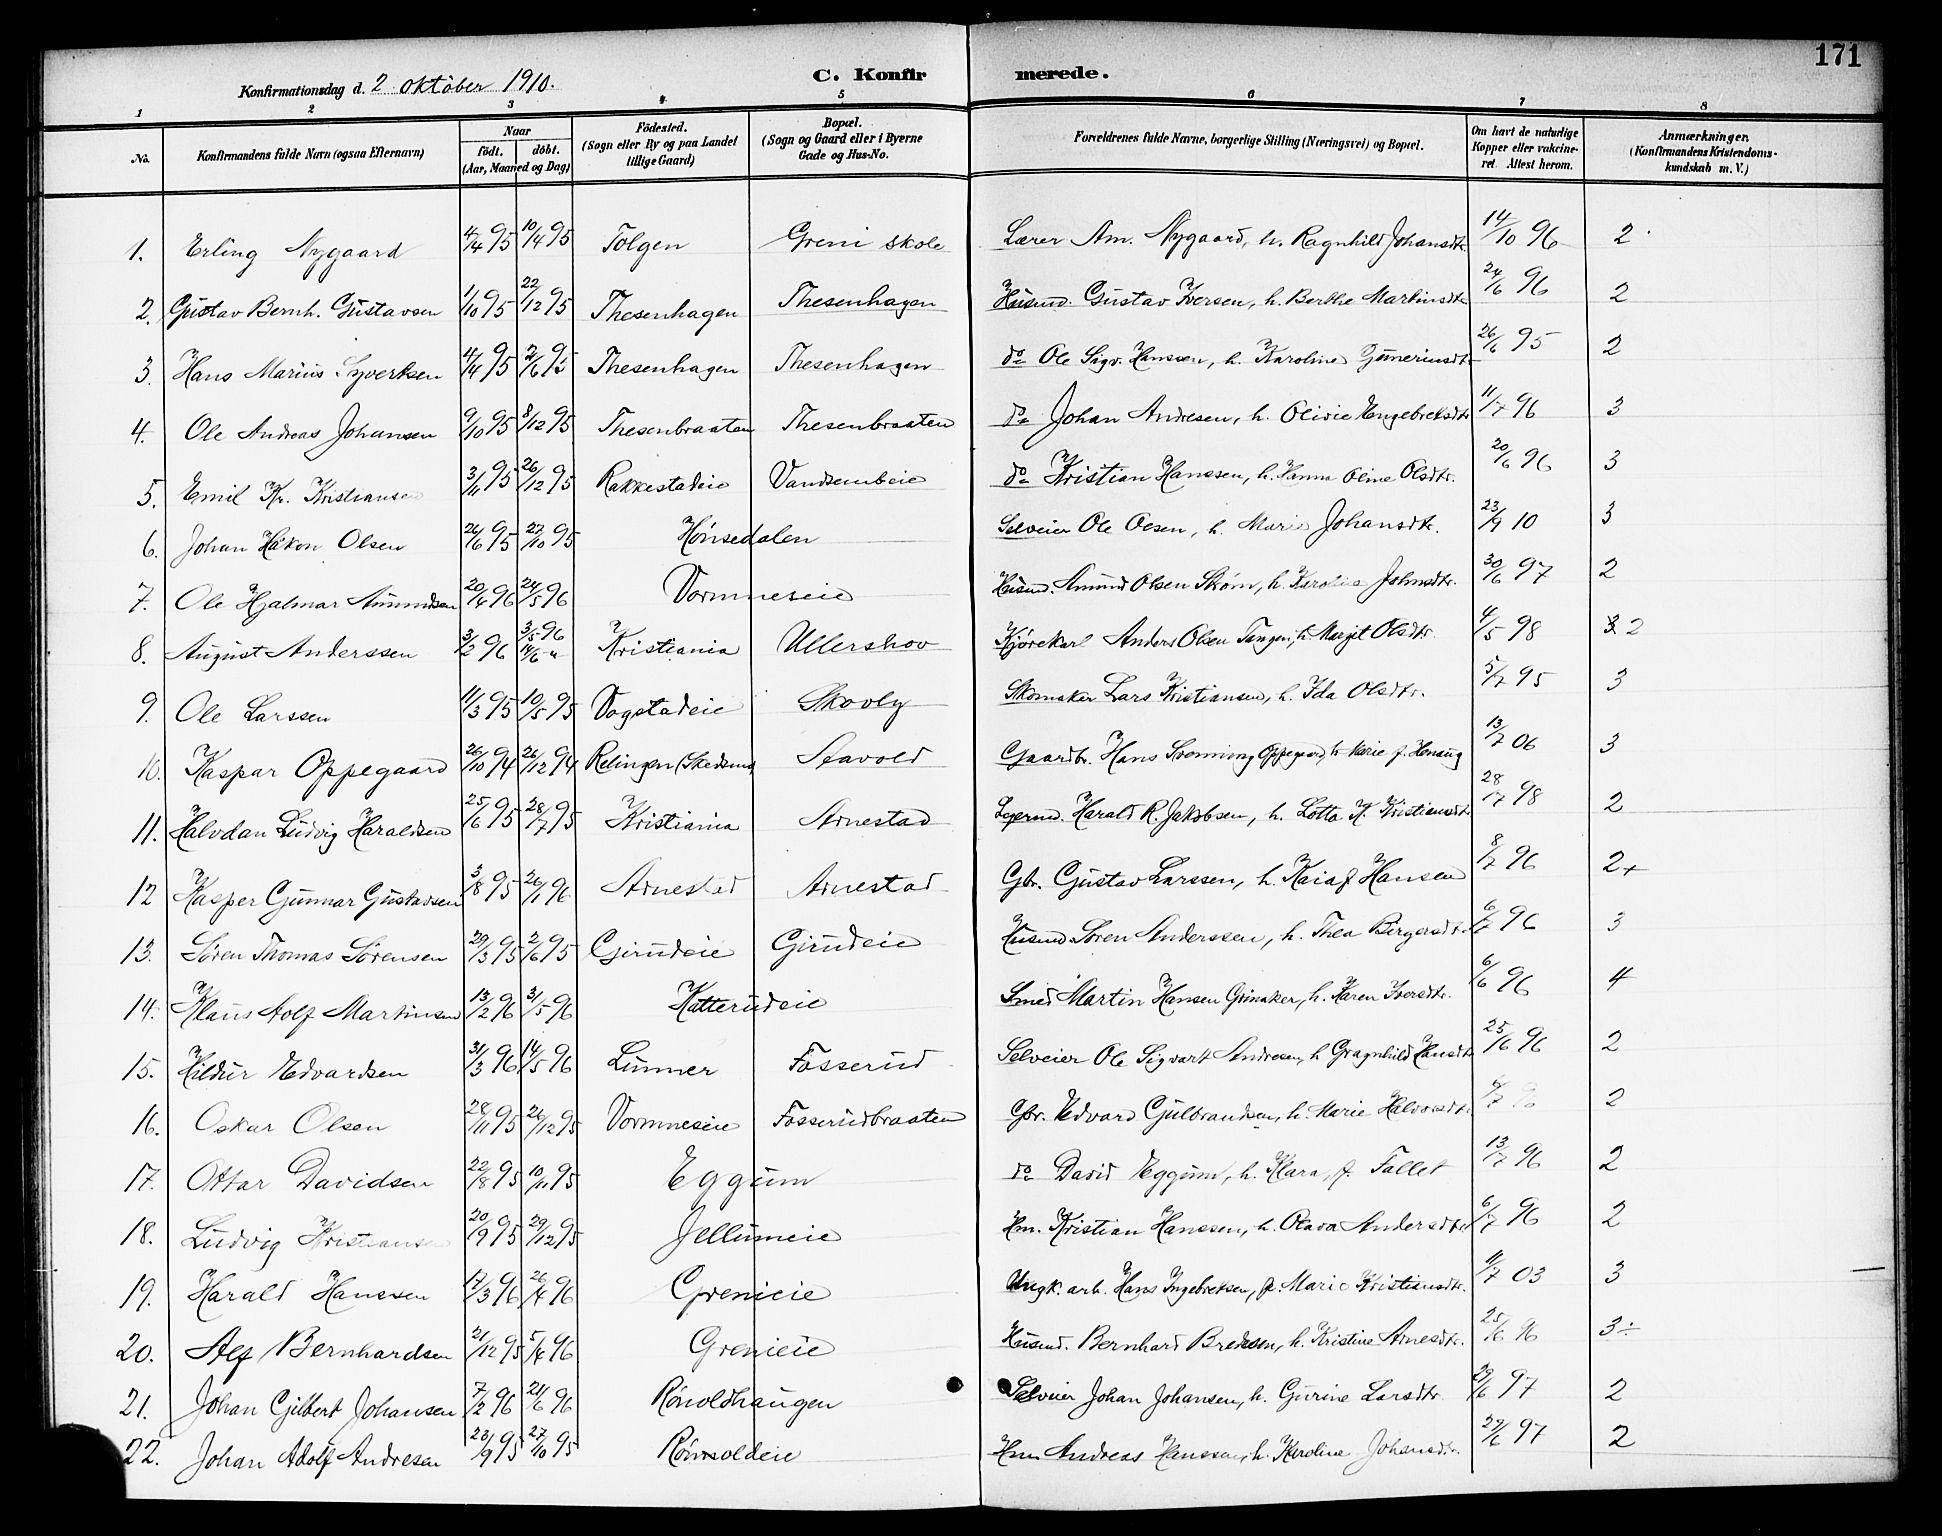 171
Konfirmationsdag d. 2 oktober 1910.
C. Konfirmerede.
1 2 3 4 5 6 7 8
No. Konfirmandens fulde Navn (ogsaa Efternavn) Naar födt. döbt. (Aar, Maaned og Dag) Födested. (Sogn eller By og paa Landet tillige Gaard) Bopæl. (Sogn og Gaard eller i Byerne Gade og Hus-No. Forældrenes fulde Navne, borgerlige Stilling (Næringsvei) og Bopæl. Om havt de naturlige Kopper eller vakcineret. Attest herom. Anmærkninger. (Konfirmandens Kristendomskundskab m. V.)
1. Erling Nygaard 4/4 95 10/4 95 Tolgen Greni skole Lærer Am. Nygaard, h. Ragnhild Johansdtr. 14/10 96 2
2. Gustav Bernh. Gustavsen 1/10 95 22/12 95 Thesenhagen Thesenhagen Husmd. Gustav Iversen, h. Berthe Martinsdtr 24/6 96 2
3. Hans Marius Syvertsen 4/4 95 2/6 95 Thesenhagen Thesenhagen do Ole Sigv. Hanssen, h. Karoline Guneriusdtr 26/6 95 2
4. Ole Andreas Johansen 9/10 95 8/12 95 Thesenbraaten Thesenbraaten do Johan Andresen, h. Olivie Engebretsdtr 11/7 96 3
5. Emil Kr. Kristiansen 3/11 95 26/12 95 Rakkestadeie Vandsembeie do Kristian Hanssen, h. Hanna Oline Olsdtr. 20/6 96 3
6. Johan Håkon Olsen 26/6 95 27/10 95 Hønsedalen Selveier Ole Olsen, h. Marie Johansdtr. 23/9 10 3
7. Ole Hjalmar Amundsen 20/4 96 24/5 96 Vormneseie Husmd. Amund Olsen Strøm, h. Karoline Johnsdtr. 30/6 97 2
8. August Anderssen 3/2 96 3/5 96 14/6 " Kristiania Ullershov Kjørekarl Anders Olsen Tangen, h. Margit Olsdtr. 4/5 98 2
9. Ole Larssen 11/3 95 10/5 95 Vogstadeie Skovly Skomaker Lars Kristiansen, h. Ida Olsdtr. 5/7 95 3
10. Kaspar Oppegaard 26/10 94 26/12 94 Relingen (Skedsmo) Stavold Gaardbr. Hans Svenning Oppegaard, h. Marie f. Henaug 13/7 06 3
11. Halvdan Ludvig Haraldsen 25/6 95 28/7 95 Kristiania Arnestad Leyermd. Harald R. Jakobsen, h. Lotta M. Kristiansdtr 28/7 98 2
12 Kasper Gunnar Gustavsen 3/8 95 26/1 96 Arnestad Arnestad Gbr. Gustav Larssen, h. Kaia f. Hansen 8/7 96 2+
13. Søren Thomas Sørensen 29/3 95 2/6 95 Girudeie Girudeie Husmd Søren Anderssen, h. Thea Birgersdtr. 6/7 96 3
14. Klaus Adolf Martinsen 13/2 96 31/5 96 Katterudeie Smed Martin Hansen Grinaker, h. Karen Iversdtr. 6/6 96 4
15. Hildur Edvardsen 31/3 96 14/5 96 Lunner Fosserud Selveier Ole Sigvart Andresen, h. Gragnhild Hansdtr 25/6 96 2
16. Oskar Olsen 28/11 95 26/12 95 Vormneseie Fosserudbraaten Gbr. Edvard Gulbrandsen, h. Marie Halvorsdtr 2
17. Ottar Davidsen 22/8 95 10/11 95 Eggum do David Eggum, h. Klara, f. Tallet 13/7 96 2
18. Ludvig Kristiansen 20/9 95 29/12 95 Jellumeie Hm. Kristian Hanssen, h. Olava Andersdtr. 6/7 96 2
19. Harald Hanssen 17/3 96 26/4 96 Grenieie Ungk. arb. Hans Ingebretsen, p. Marie Kristiansdtr. 11/7 03 3
20. Alf Bernhardsen 21/12 95 5/4 96 Grenieie Husmd. Bernhard Bredesen, h. Kristine Arnesdtr. 25/6 96 3÷
21. Johan Gilbert Johansen 7/2 96 21/6 96 Rønoldhaugen Selveier Johan Johansen, h. Gurine Larsdtr. 29/6 97 2
22. Johan Adolf Andresen 23/9 95 27/10 95 Rønnoldeie Hm Andreas Hanssen, h. Karoline Johansdtr. 29/6 97 2